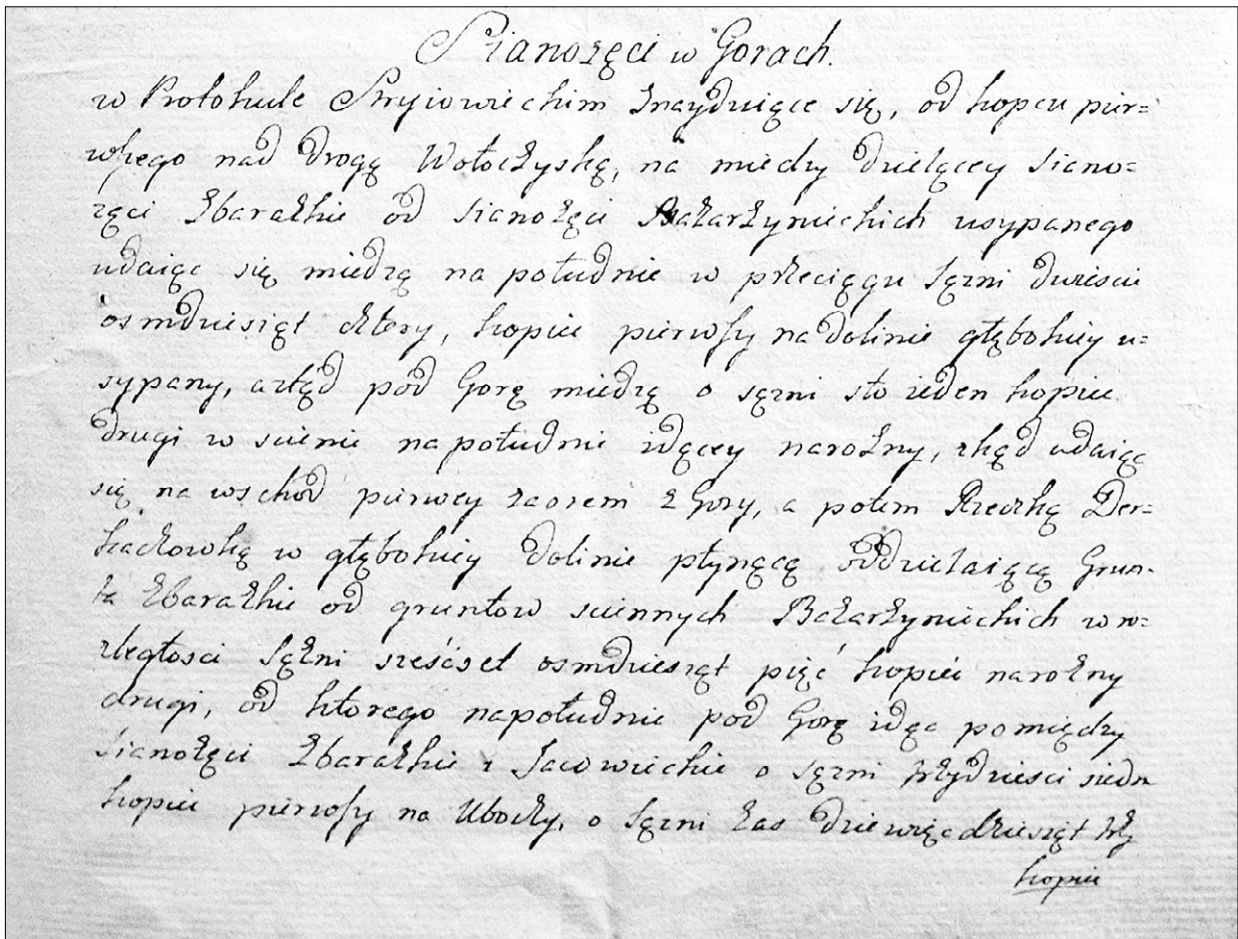 Sianozęci w Gorach.
w Protokule Stryiowieckim Znayduiące się, od kopcu pier=
wszego nad drogą Wołoczyską, na miedzy dzielącey siano=
zęci Zbarazkie od sianozęci Bazarzynieckich usypanego
udaiąc się miedzą na południe w przeciągu Sęzni dwiescie
osmdziesiąt cztery, kopiec pierwszy na dolinie głębokiey u=
sypany, a ztąd pod Gorę miedzą o sęzni sto ieden kopiec
drugi w scienie na południe idącey narozny, zkąd udaiąc
się na wschod pierwey zaorem z Gory, a potem Rzeczką Der=
kaczowką w głębokiey dolinie płynącą oddzielaiącą Grun=
ta Zbarazkie od gruntow sciennych Bazarzynieckich w ro=
zległosci Sązni sześćset osmdziesiąt pięć kopiec narozny
drugi, od ktorego na południe pod Gorę idąc pomiędzy
sianozęci Zbarazkie i Jacowieckie o sęzni trzydziesci siedm
kopiec pierwszy na Uboczy, o Sęzni zas dziewięcdziesiąt trzy
kopiec